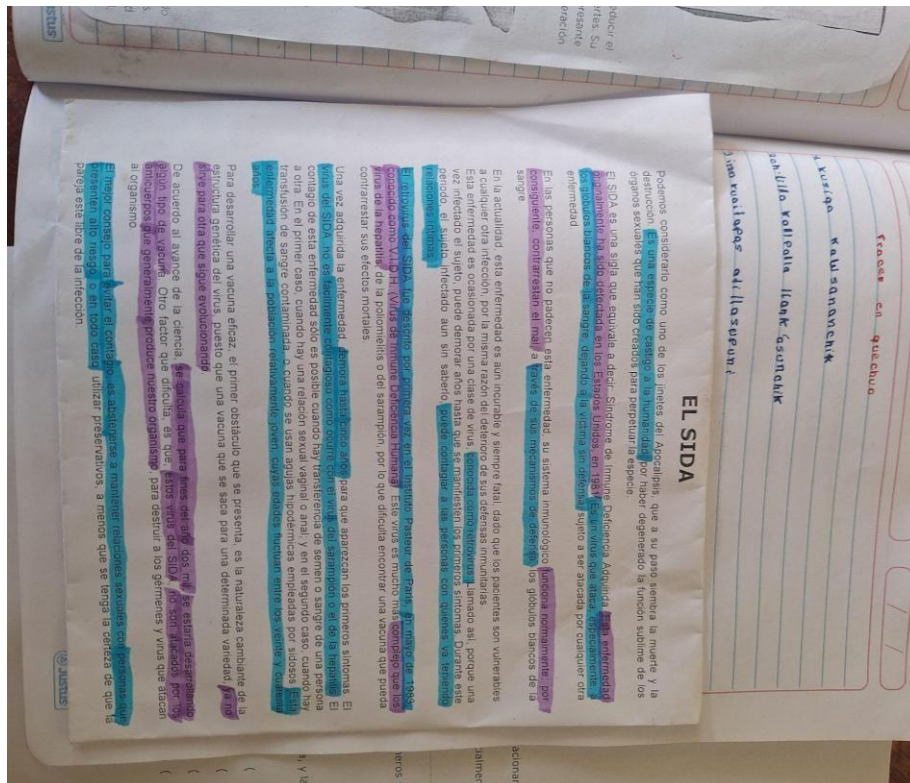 EL SIDA
Podemos considerarlo como uno de los jinetes del Apocalipsis, que a su paso siembra la muerte y la
destrucción. Es una especie de castigo a la humanidad, por haber degenerado la función sublime de los
órganos sexuales que han sido creados para perpetuar la especie.
El SIDA es una sigla que equivale a decir: Síndrome de Inmune Deficiencia Adquirida. Esta enfermedad
originalmente ha sido detectada en los Estados Unidos, en 1981. Es un virus que ataca, especialmente a
los glóbulos blancos de la sangre, dejando a la víctima sin defensa, sujeto a ser atacada por cualquier otra
enfermedad.
En las personas que no padecen esta enfermedad, su sistema inmunológico funciona normalmente, por
consiguiente, contrarrestan el mal, a través de sus mecanismos de defensa, los glóbulos blancos de la
sangre.
En la actualidad, esta enfermedad es aún incurable y siempre fatal, dado que los pacientes son vulnerables
a cualquier otra infección, por la misma razón del deterioro de sus defensas inmunitarias.
Esta enfermedad es ocasionada por una clase de virus, conocida como retrovirus. Llamado así, porque una
vez infectado el sujeto, puede demorar años hasta que se manifiesten los primeros síntomas. Durante este
periodo, el sujeto infectado aun sin saberlo, puede contagiar a las personas con quienes va teniendo
relaciones íntimas.
El retrovirus del SIDA, fue descrito por primera vez en el Instituto Pasteur de París, en mayo de 1983,
conocido como V.I.D.H. (Virus de Inmune Deficiencia Humana). Este virus es mucho más complejo que los
virus de la hepatitis, de la poliomielitis o del sarampión, por lo que dificulta encontrar una vacuna que pueda
contrarrestar sus efectos mortales.
Una vez adquirida la enfermedad, demora hasta cinco años para que aparezcan los primeros síntomas. El
virus del SIDA, no es fácilmente contagioso como ocurre con el virus del sarampión o el de la hepatitis. El
contagio de esta enfermedad sólo es posible cuando hay transferencia de semen o sangre de una persona
a otra. En el primer caso, cuando hay una relación sexual vaginal o anal; y en el segundo caso, cuando hay
transfusión de sangre contaminada, o cuando se usan agujas hipodérmicas empleadas por sidosos. Esta
enfermedad afecta a la población relativamente joven, cuyas edades fluctúan entre los veinte y cuarenta
años.
Para desarrollar una vacuna eficaz, el primer obstáculo que se presenta, es la naturaleza cambiante de la
estructura genética del virus, puesto que una vacuna que se saca para una determinada variedad, ya no
sirve para otra que sigue evolucionando.
De acuerdo al avance de la ciencia, se calcula que para fines del año dos mil, se estaría desarrollando
algún tipo de vacuna. Otro factor que dificulta, es que, estos virus del SIDA, no son atacados por los
anticuerpos que generalmente produce nuestro organismo, para destruir a los gérmenes y virus que atacan
al organismo.
El mejor consejo para evitar el contagio, es abstenerse a mantener relaciones sexuales con personas que
presenten alto riesgo, o en todo caso, utilizar preservativos, a menos que se tenga la certeza de que la
pareja esté libre de la infección.
en quechua
kusiqa kawsananchik
JUSTUS
JUSTUS
educir el
rtes. Su
resante
eración
acionar
neros